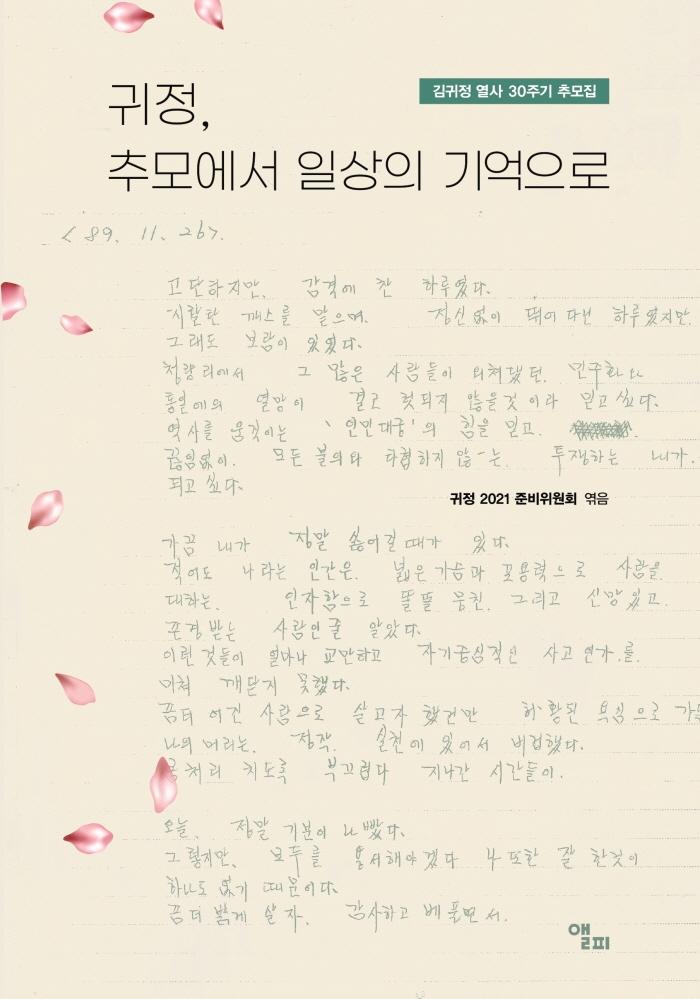 김귀정 열사 30주기 추모집
귀정,
추모에서 일상의 기억으로
< 89. 11. 26>.
고단하지만, 감격에 찬 하루였다.
지랄탄 개스를 맡으며. 정신없이 뛰어다닌 하루였지만.
그래도 보람이 있었다.
청량리에서 그 많은 사람들이 외쳐댔던. 민주화와
통일에의 열망이 결코 헛되지 않을것이라 믿고싶다.
역사를 움직이는 '인민대중'의 힘을 믿고.
끊임없이. 모든 불의와 타협하지 않는. 투쟁하는 내가.
되고 싶다.
귀정 2021 준비위원회 엮음
가끔 내가 정말 싫어질때가 있다.
적어도 나라는 인간은. 넓은 가슴과 포용력으로 사람을
대하는. 인자함으로 똘똘 뭉친. 그리고 신망있고
존경받는 사람인줄 알았다.
이런것들이 얼마나 교만하고 자기중심적인 사고인가.를.
미쳐 깨닫지 못했다.
좀더 여진 사람으로 살고자 했건만 허황된 욕심으로
나의 머리는. 정작. 실천에 있어서 버겁했다.
몸처리 치도록 부끄럽다 지나간 시간들이.
오늘. 정말 기분이 나빴다.
그렇지만, 모두를 용서해야겠다 나 또한 잘 한것이
하나도 없기 때문이다.
좀더 밝게 살자. 감사하고 베풀면서.
앨피